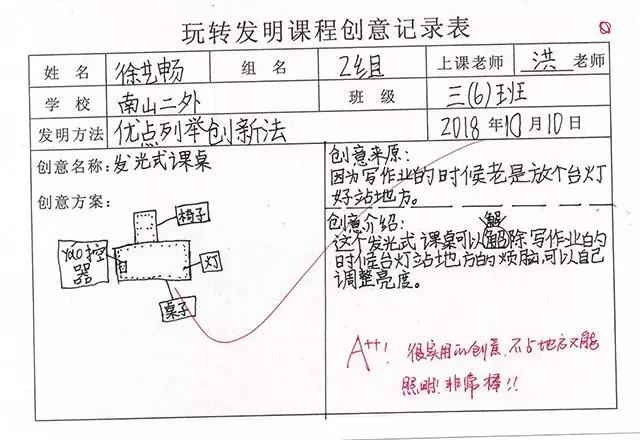 玩转发明课程创意记录表
姓名 徐艺畅 组名 2组 上课老师 洪老师
学校 南山二外 班级 三(6)班
发明方法 优点列举创新法 2018年10月10日
创意名称:发光式课桌
创意方案:
椅子
灯
桌子
控
器
创意来源:
因为写作业的时候老是放个台灯
好站地方。
创意介绍:
解
这个发光式课桌可以除写作业的
时候台灯站地方的烦脑,可以自己
调整亮度。
A++! 很实用的创意,不占地方又能
照明!非常棒!!